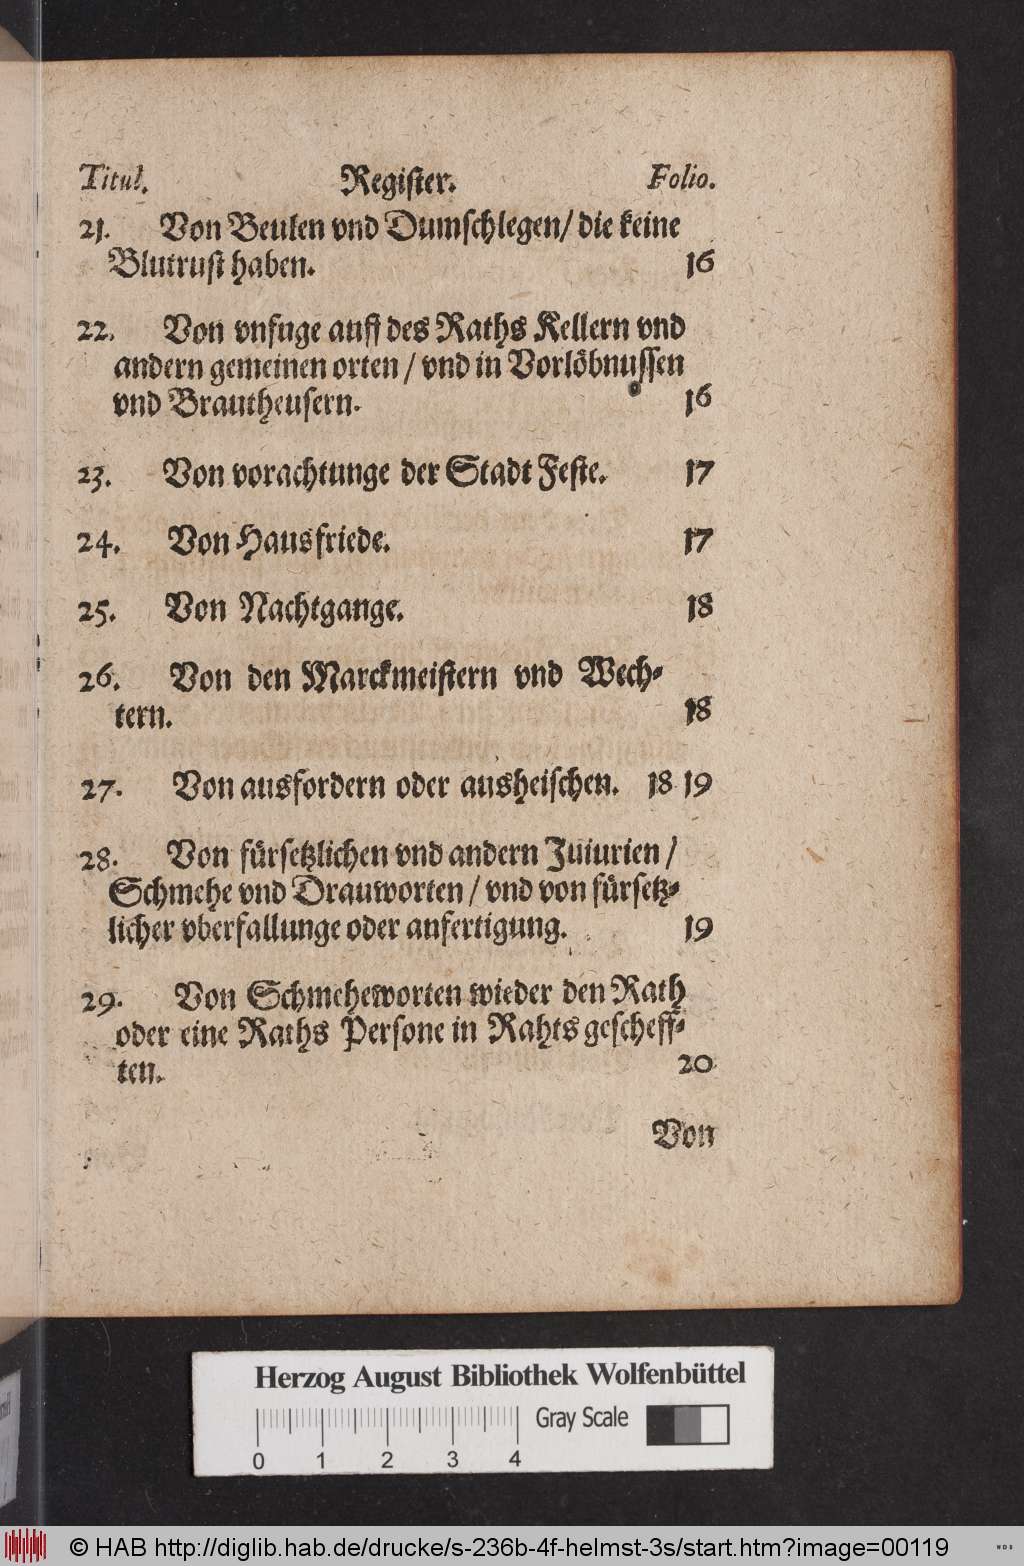 Titul. Register. Folio.
21. Von Beulen vnd Dumschlegen/ die keine
Blutrust haben. 16
22. Von vnfuge auff des Raths Kellern vnd
andern gemeinen orten / vnd in Vorlöbnussen
vnd Brautheusern. 16
23. Von vorachtunge der Stadt Feste. 17
24. Von Hausfriede. 17
25. Von Nachtgange. 18
26. Von den Marckmeistern vnd Wech-
tern. 18
27. Von ausfordern oder ausheischen. 18 19
28. Von fürsetzlichen vnd andern Iuiurien /
Schmehe vnd Drauworten / vnd von fürsetz-
licher vberfallunge oder anfertigung. 19
29. Von Schmeheworten wieder den Rath
oder eine Raths Persone in Rahts gescheff-
ten. 20
Von
Herzog August Bibliothek Wolfenbüttel
Gray Scale
0 1 2 3 4
© HAB http://diglib.hab.de/drucke/s-236b-4f-helmst-3s/start.htm?image=00119